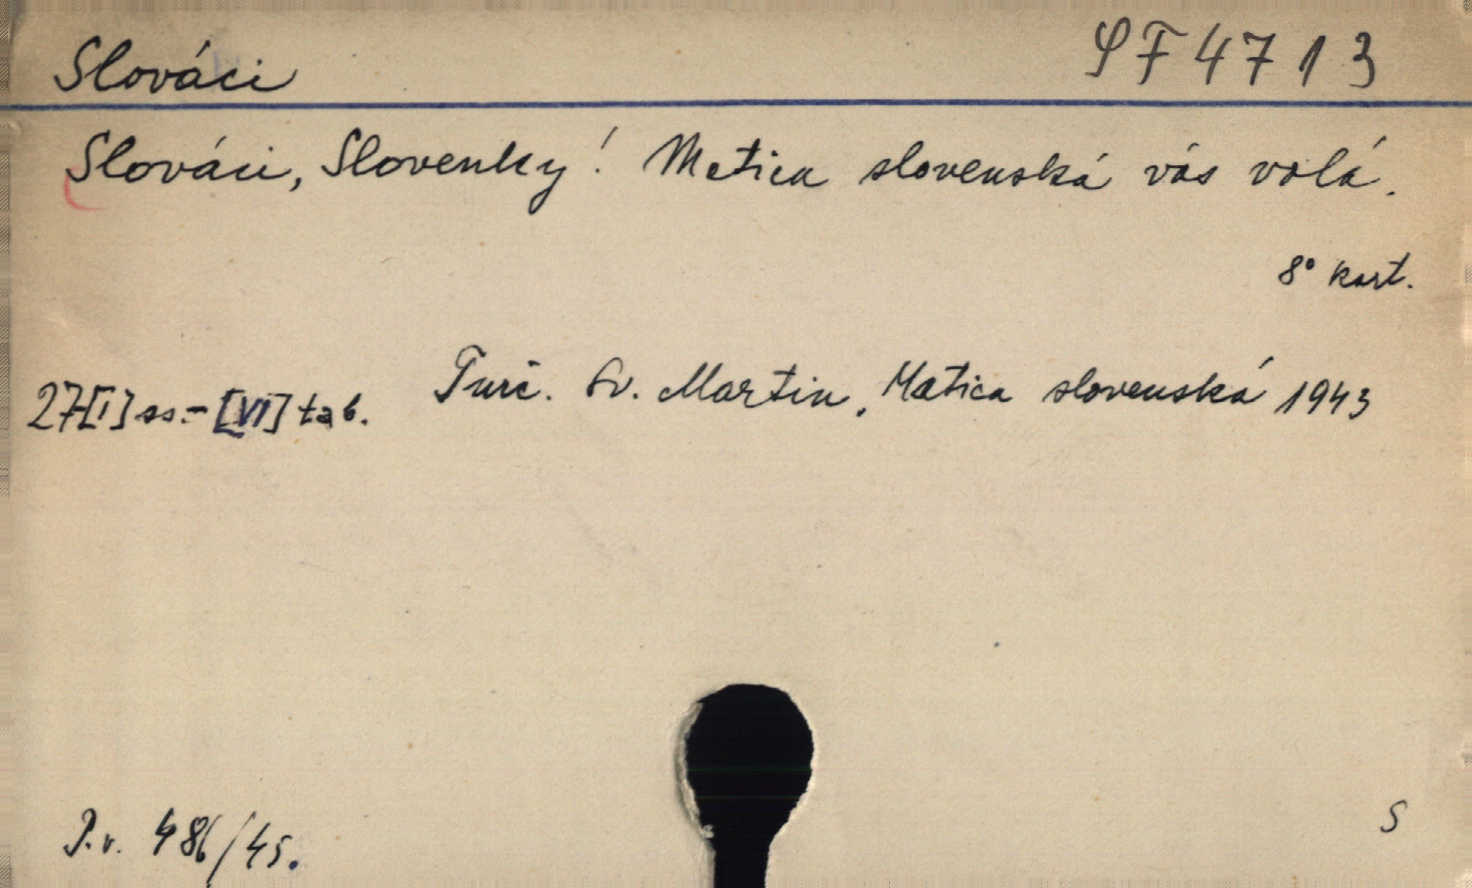 Slováci
SF 4713
Slováci, Slovenky! Matica slovenská vás volá.
8° kart.
27[I] ss.- [VI] tab. Turč. Sv. Martin, Matica slovenská 1943
P.v. 486/45.
S